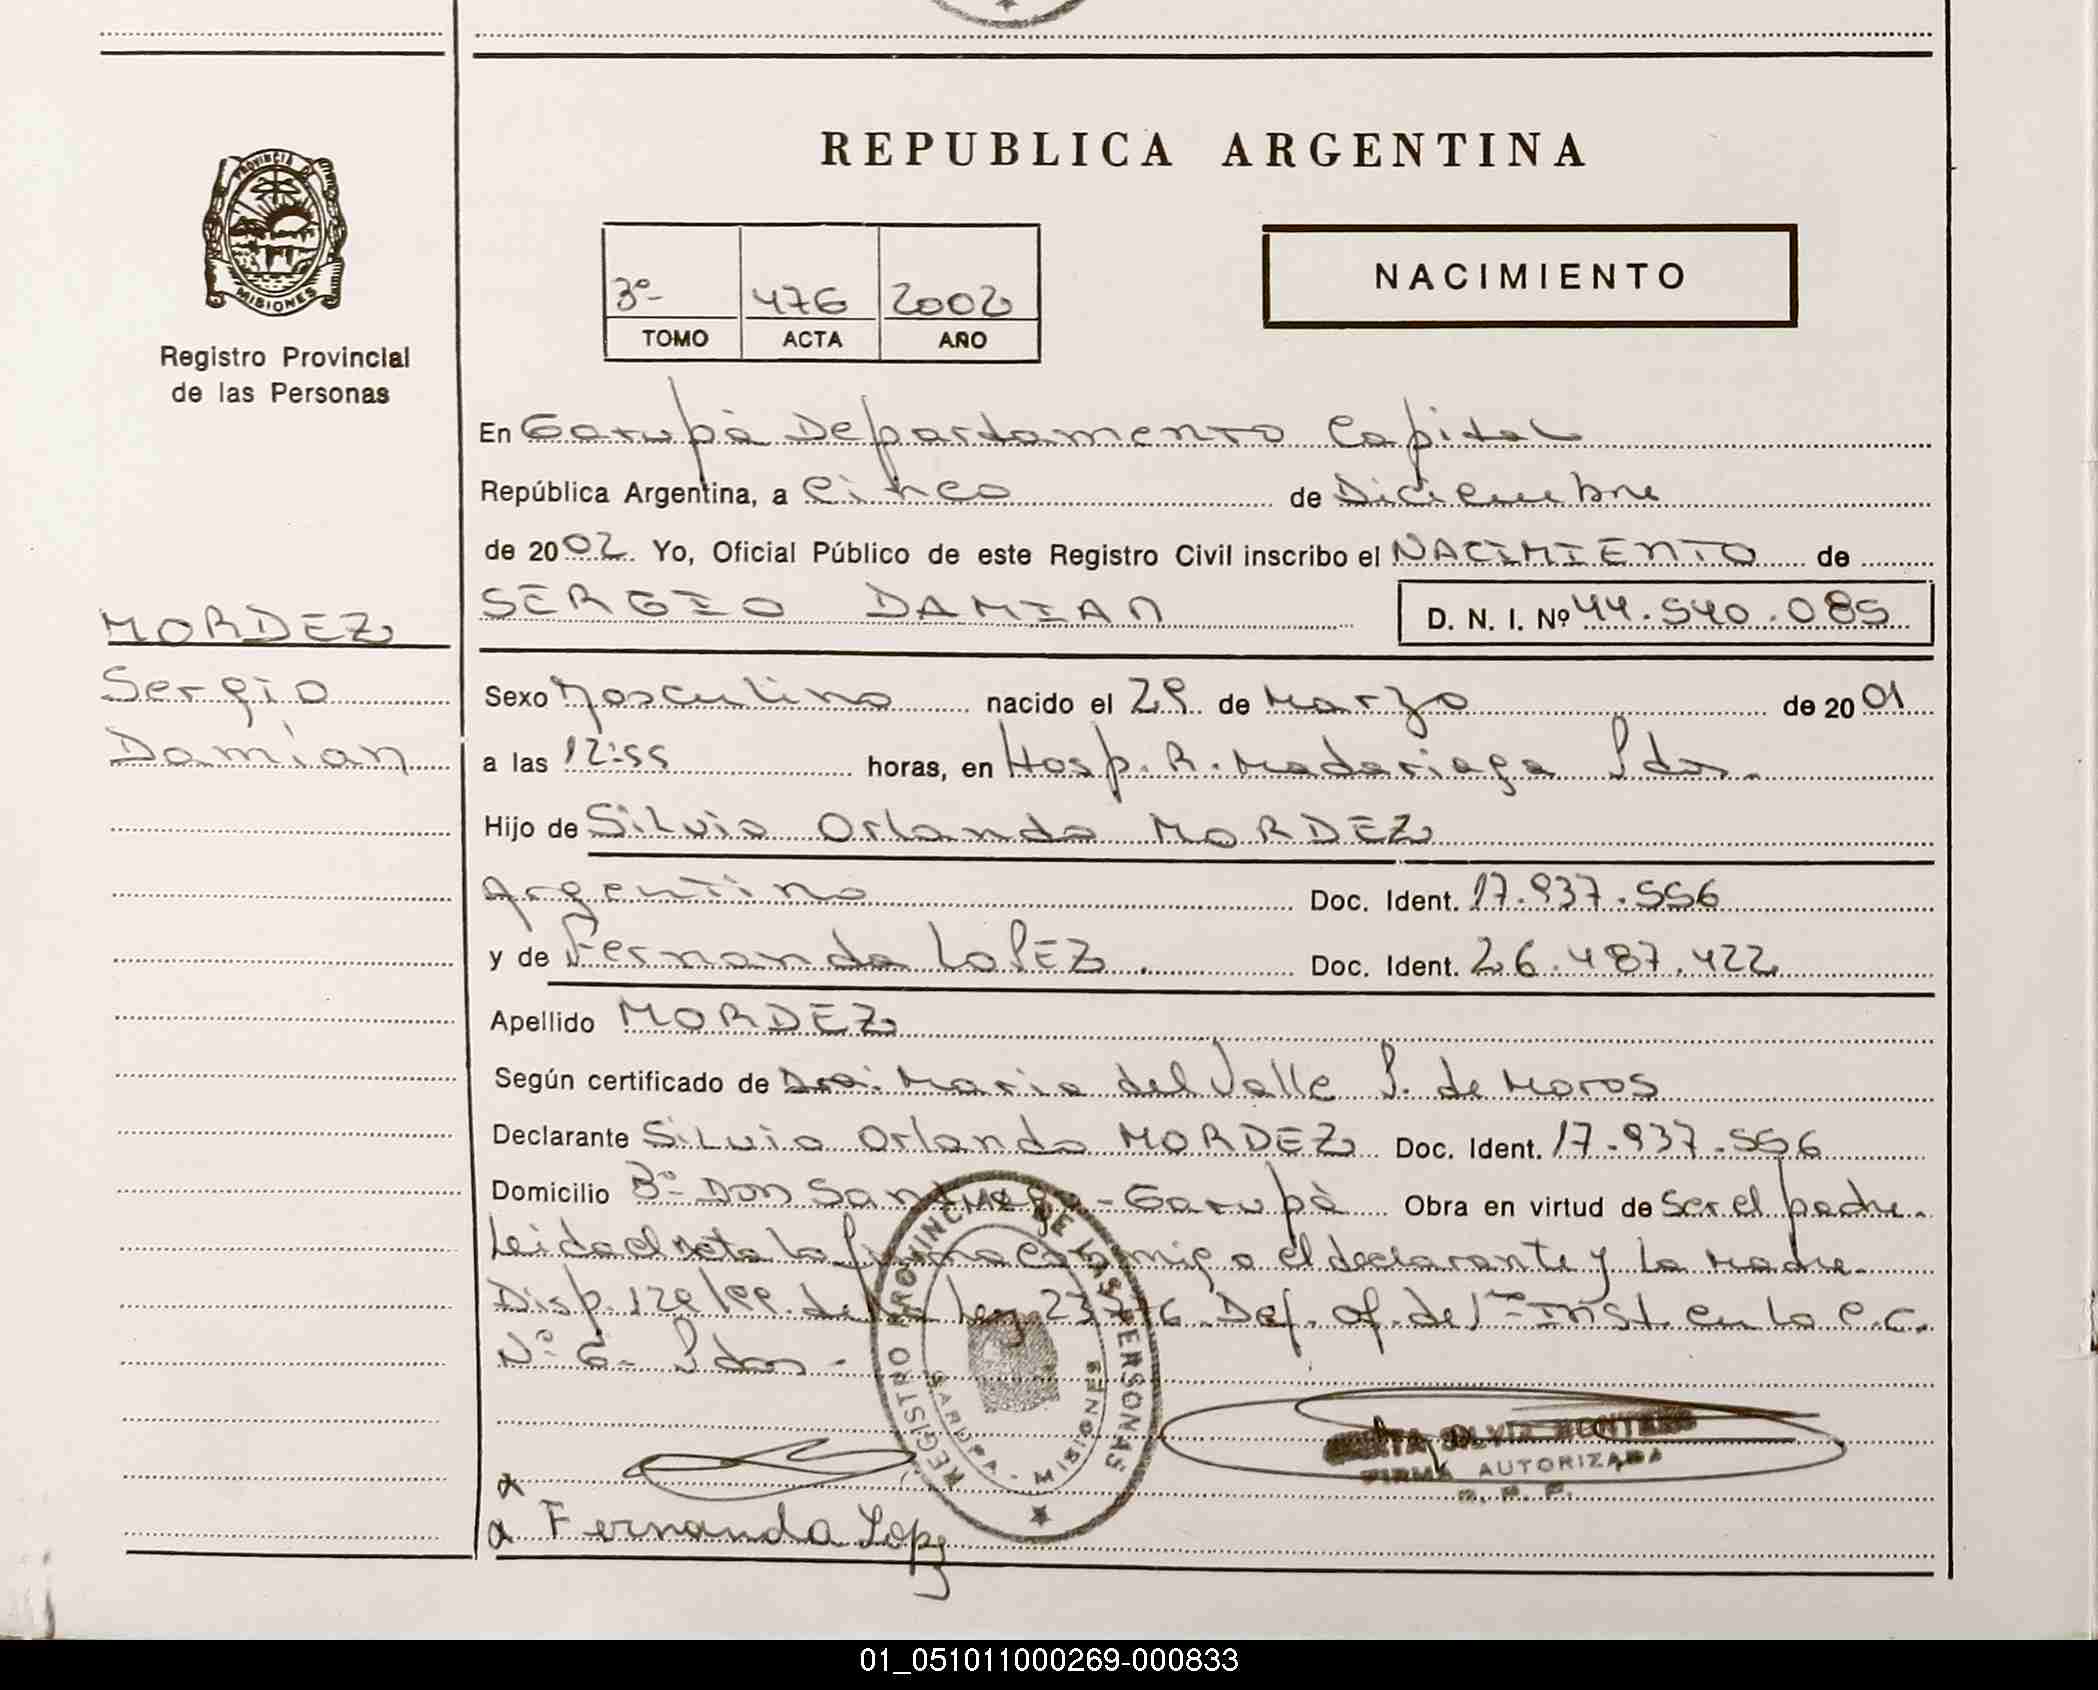 REPUBLICA ARGENTINA
PROVINCIA DE
MISIONES
Registro Provincial
de las Personas
NACIMIENTO
3º- 476 2002
TOMO ACTA AÑO
En Garupà Departamento Capital
República Argentina, a Cinco de Diciembre
de 2002 Yo, Oficial Público de este Registro Civil inscribo el NACIMIENTO de
SERGIO DAMIAN D. N. I. Nº 44.540.085
MORDEZ
Sergio
Damian
Sexo Masculino nacido el 29 de Marzo de 2001
a las 12:55 horas, en Hosp. R. Madariaga Pdas.
Hijo de Silvio Orlando MORDEZ
Argentino Doc. Ident. 17.937.556
y de Fernanda LoPEZ. Doc. Ident. 26.487.422
Apellido MORDEZ
Según certificado de Dra. Maria del Valle P. de Moros
Declarante Silvio Orlando MORDEZ Doc. Ident. 17.937.556
Domicilio Bº Don Santiago - Garupà Obra en virtud de Ser el padre.
Leida el acta la firma conmigo el declarante y la madre.
Disp. 129/99. de la Ley 23 Def. of. de 1ra Inst. en lo C.C.
Nº 6- Pdas-
REGISTRO PROVINCIAL DE LAS PERSONAS
GARUPA - MISIONES
FIRMA AUTORIZADA
R. P. P.
Fernanda Lopez
01_051011000269-000833